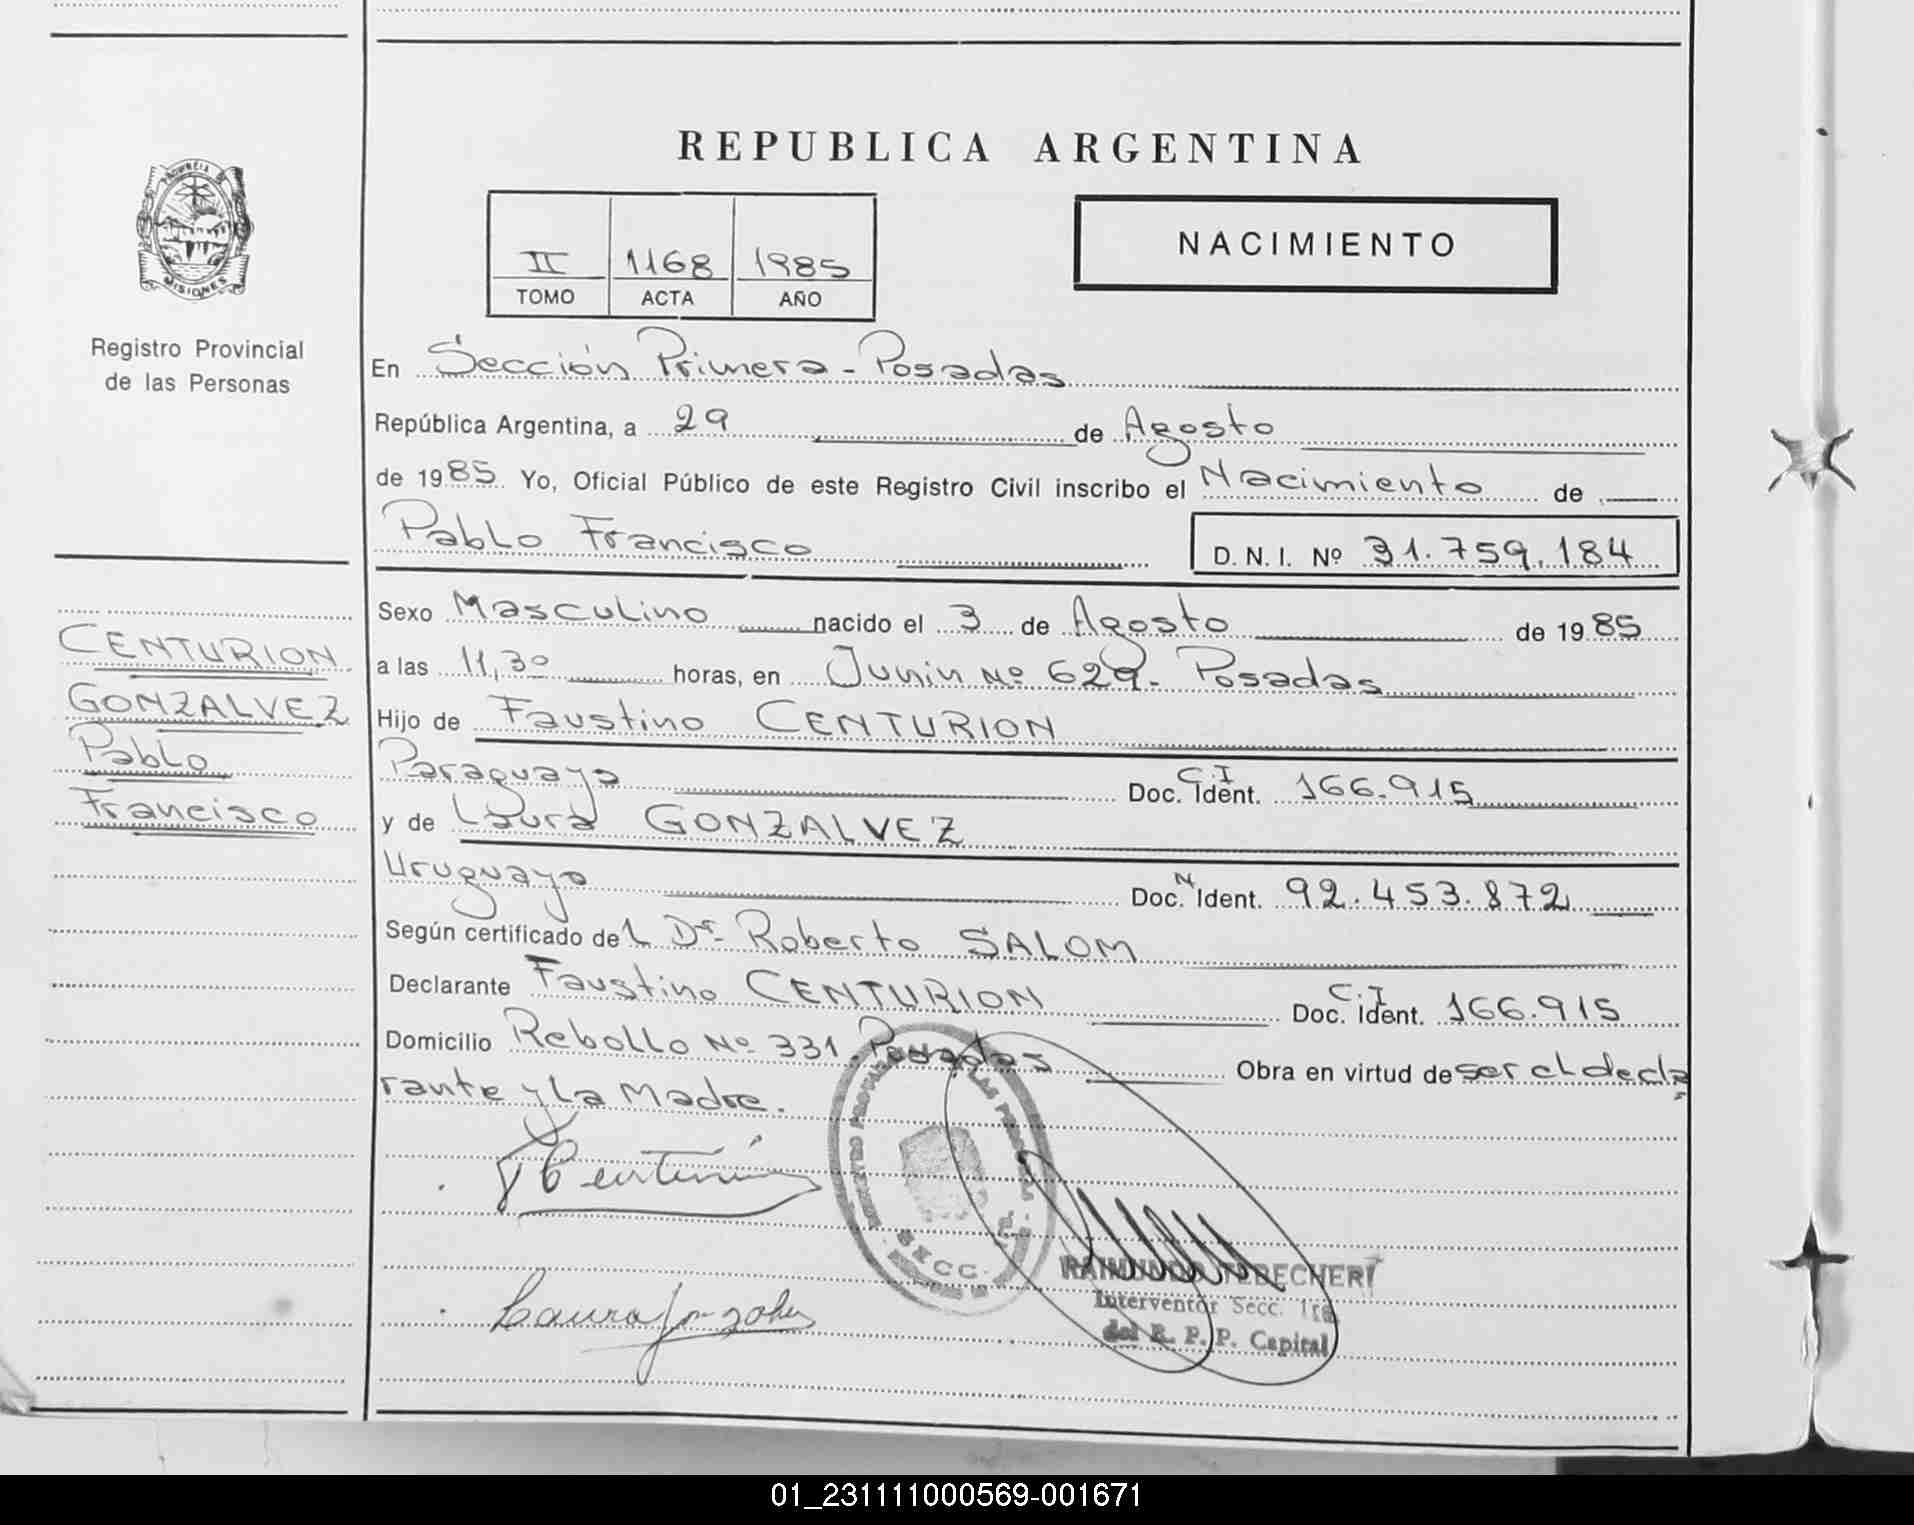 REPUBLICA ARGENTINA
PROVINCIA DE
MISIONES
Registro Provincial
de las Personas
II 1168 1985
TOMO ACTA AÑO
NACIMIENTO
En Sección Primera - Posadas
República Argentina, a 29 de Agosto
de 1985 Yo, Oficial Público de este Registro Civil inscribo el Nacimiento de
Pablo Francisco
D. N. I. Nº 31.759.184
Sexo Masculino nacido el 3 de Agosto de 1985
a las 11,30 horas, en Junin Nº 629 - Posadas
Hijo de Faustino CENTURION
Paraguayo Doc. Ident. C.I 166.915
y de Laura GONZALVEZ
Uruguaya Doc. N Ident. 92.453.872
Según certificado del Dr. Roberto SALOM
Declarante Faustino CENTURION Doc. Ident. C.I 166.915
Domicilio Rebollo Nº 331. Posadas Obra en virtud de ser el decla
rante y la Madre.
CENTURION
GONZALVEZ
Pablo
Francisco
Centurión
Laura Gonzalvez
SECC.
RAIMUNDO TEBECHERI
Interventor Secc. 1ra
del R. P. P. Capital
01_231111000569-001671